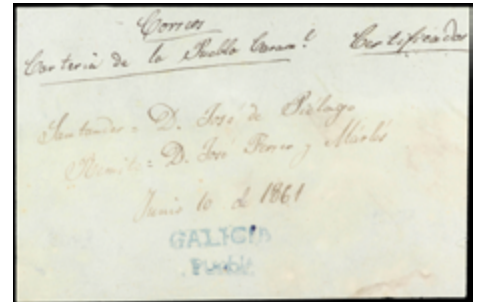 Correos
Carteria de la Puebla Caram.l Certificador
Santander = D. José de Piélago
Remite = D. José Ferrer y Márlés
Junio 10 de 1861
GALICIA
Puebla